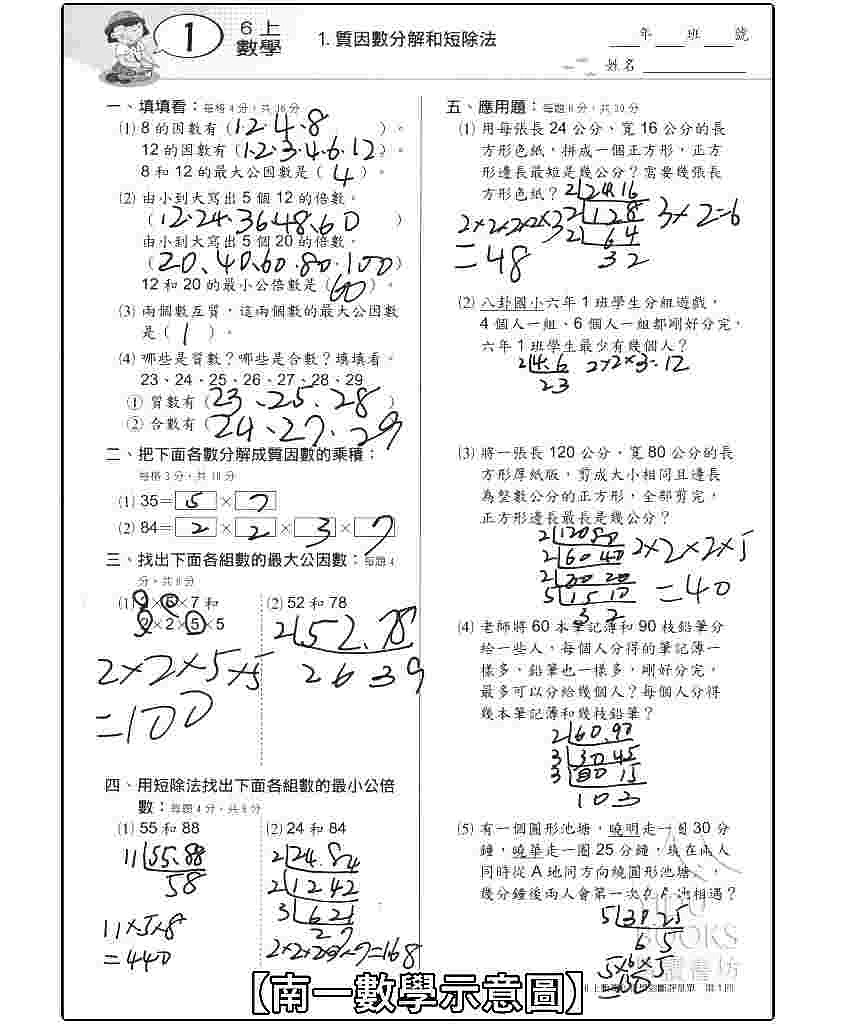 1
6上
數學
1.質因數分解和短除法
年 班 號
姓名
一、填填看：每格4分，共36分
(1) 8 的因數有（1、2、4、8）。
12 的因數有（1、2、3、4、6、12）。
8 和 12 的最大公因數是（4）。
(2) 由小到大寫出 5 個 12 的倍數。
（12、24、36、48、60）
由小到大寫出 5 個 20 的倍數。
（20、40、60、80、100）
12 和 20 的最小公倍數是（60）。
(3) 兩個數互質，這兩個數的最大公因數
是（1）。
(4) 哪些是質數？哪些是合數？填填看。
23、24、25、26、27、28、29
① 質數有（23、25、28）
② 合數有（24、27、29
二、把下面各數分解成質因數的乘積：
每格3分，共18分
(1) 35＝5×7
(2) 84＝2×2×3×7
三、找出下面各組數的最大公因數：每題4
分，共8分
×7 和
×2×5×5
2×2×5×5
=100
(2) 52 和 78
2 52、78
26 39
四、用短除法找出下面各組數的最小公倍
數：每題4分，共8分
(1) 55 和 88
11 55、88
5 8
11×5×8
=440
(2) 24 和 84
2 24、84
2 12 42
3 6 21
2 7
2×2×3×2×7=168
五、應用題：每題6分，共30分
(1) 用每張長 24 公分、寬 16 公分的長
方形色紙，拼成一個正方形，正方
形邊長最短是幾公分？需要幾張長
方形色紙？
2 24、16
2 12 8
2 6 4
3 2
2×2×2×2×3
=48
3×2=6
(2) 八卦國小六年 1 班學生分組遊戲，
4 個人一組、6 個人一組都剛好分完，
六年 1 班學生最少有幾個人？
2 4、6
2 3
2×2×3=12
(3) 將一張長 120 公分、寬 80 公分的長
方形厚紙版，剪成大小相同且邊長
為整數公分的正方形，全部剪完，
正方形邊長最長是幾公分？
2 120 80
2 60 40
2 30 20
5 15 10
3 2
2×2×2×5
=40
(4) 老師將 60 本筆記簿和 90 枝鉛筆分
給一些人，每個人分得的筆記簿一
樣多、鉛筆也一樣多，剛好分完，
最多可以分給幾個人？每個人分得
幾本筆記簿和幾枝鉛筆？
2 60、90
3 30 45
15
10 3
(5) 有一個圓形池塘，曉明走一圈 30 分
鐘，曉華走一圈 25 分鐘，現在兩人
同時從 A 地同方向繞圓形池塘
幾分鐘後兩人會第一次在 A 地相遇？
5 30、25
6 5
5×6×5
BOOKS
書坊
【南一數學示意圖】